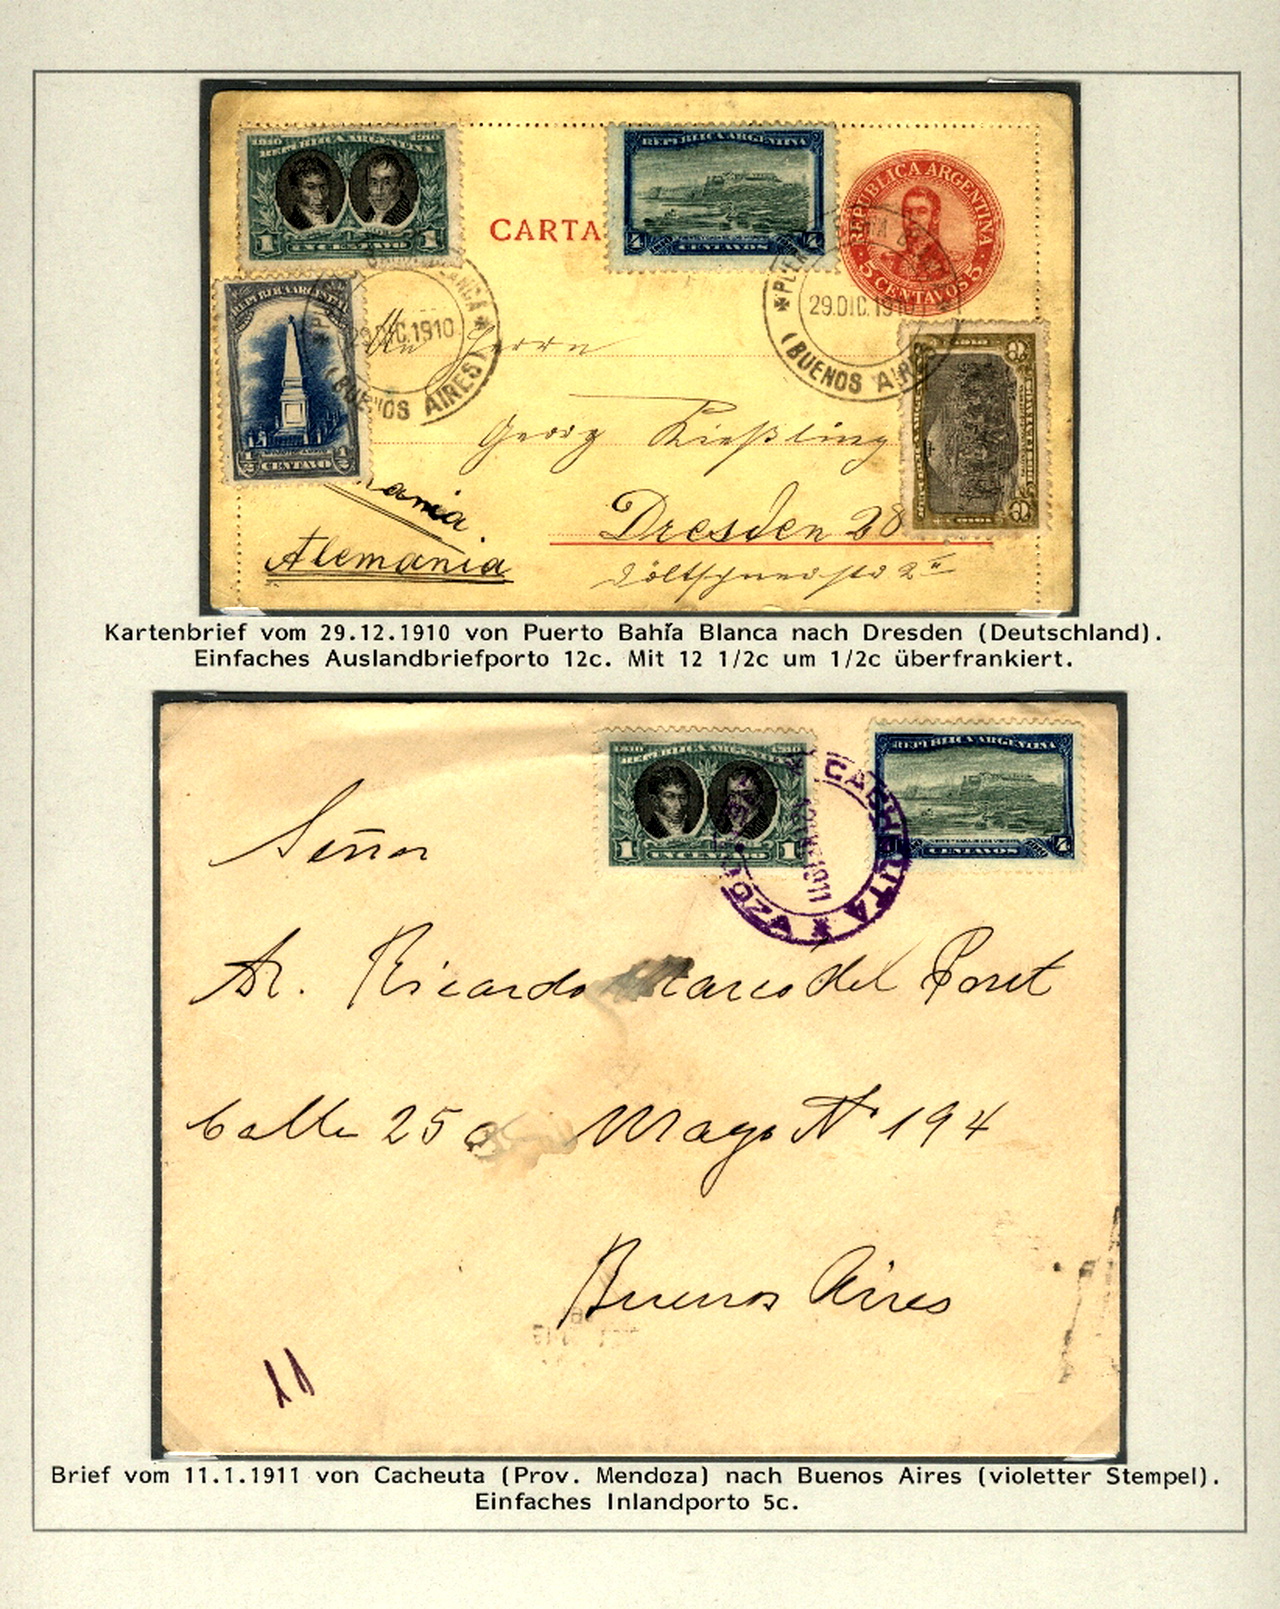 1810 1910
REPUBLICA ARGENTINA
1 UN CENTAVO 1
REPUBLICA ARGENTINA
4 CENTAVOS 4
REPUBLICA ARGENTINA
5 CENTAVOS 5
CARTA
BAHIA BLANCA
29.DIC.1910
(BUENOS AIRES)
PUER
29.DIC.1910
(BUENOS AIRES
REPUBLICA ARGENTINA
1/2 CENTAVO 1/2
2 2
An Herrn
Georg Kießling
Dresden 28
ania
Alemania
Kartenbrief vom 29.12.1910 von Puerto Bahía Blanca nach Dresden (Deutschland).
Einfaches Auslandbriefporto 12c. Mit 12 1/2c um 1/2c überfrankiert.
1810 1910
REPUBLICA ARGENTINA
1 UN CENTAVO 1
REPUBLICA ARGENTINA
CENTAVOS 1910 4
CACHEUTA
OZA
Señor
Dr. Ricardo Marco del Pont
Calle 25 d Mayo Nº 194
Buenos Aires
11
Brief vom 11.1.1911 von Cacheuta (Prov. Mendoza) nach Buenos Aires (violetter Stempel).
Einfaches Inlandporto 5c.